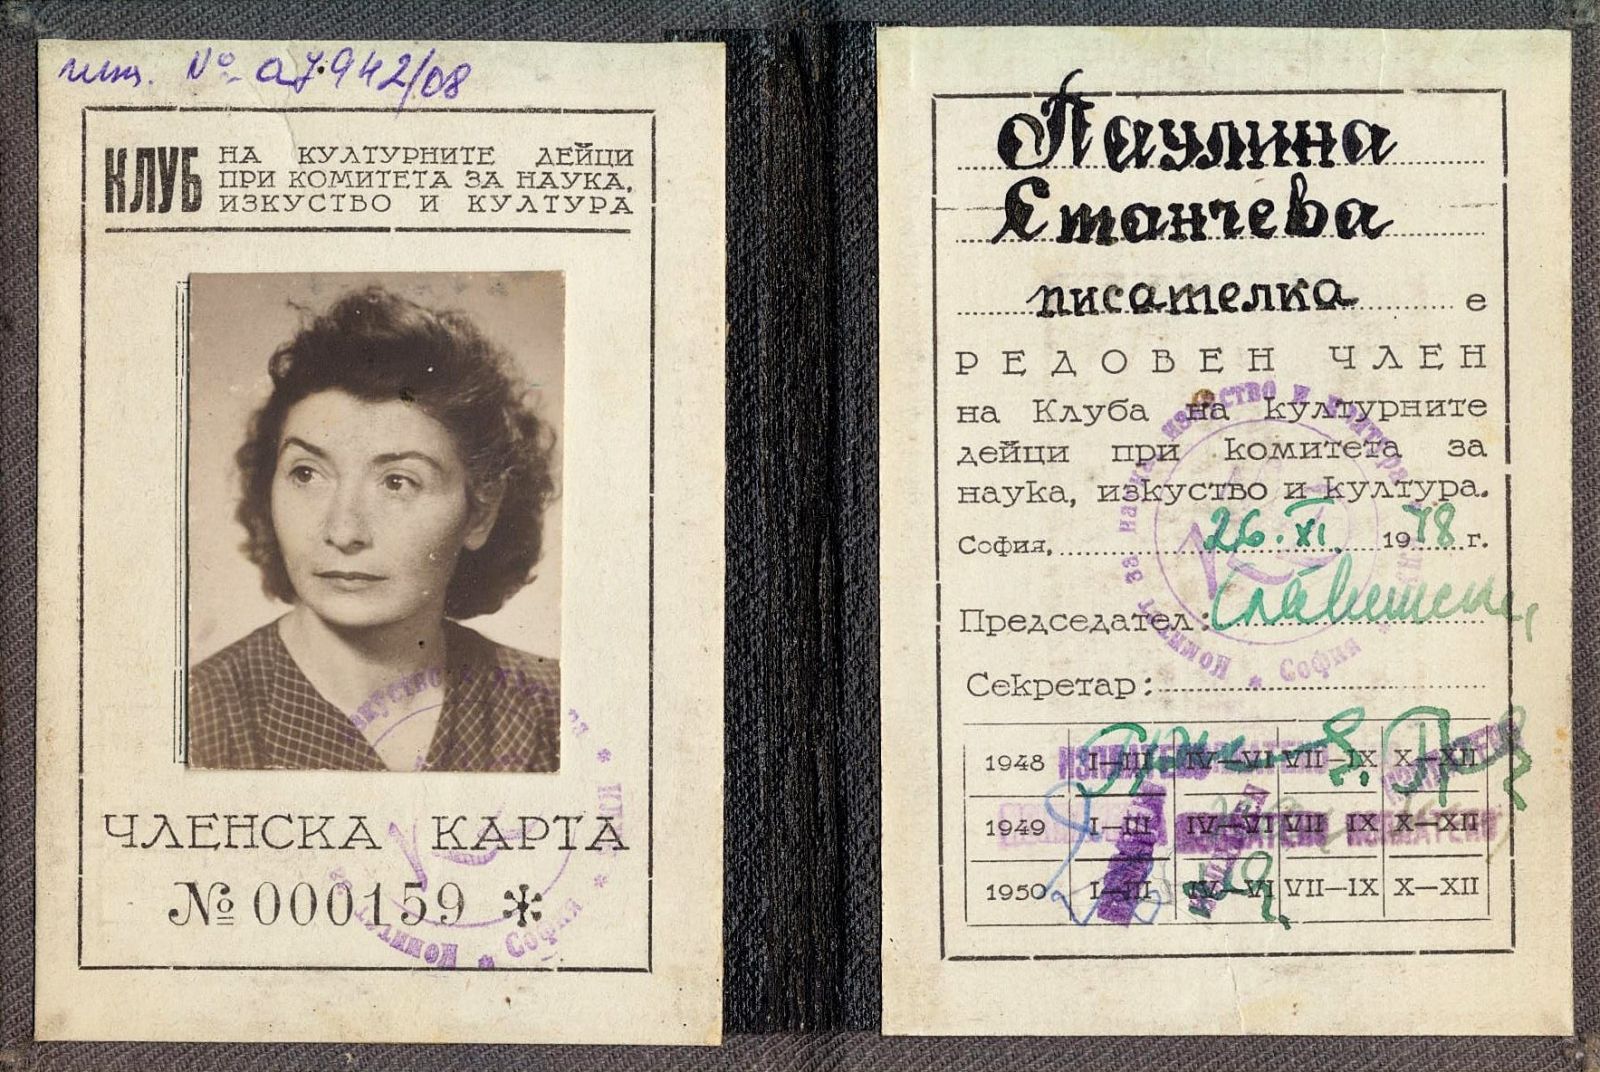 инв. № а7942/08
КЛУБ НА КУЛТУРНИТЕ ДЕЙЦИ
ПРИ КОМИТЕТА ЗА НАУКА,
ИЗКУСТВО И КУЛТУРА
ЧЛЕНСКА КАРТА
№ 000159 *
Паулина
Станчева
писателка е
РЕДОВЕН ЧЛЕН
на Клуба на културните
дейци при комитета за
наука, изкуство и култура.
София, 26. XI. 1948 г.
Председател:
Секретар:
1948 I—III IV—VI VII—IX X—XII
1949 I—III IV—VI VII IX X—XII
1950 I—III IV—VI VII—IX X—XII
Комитет за наука изкуство и култура * София *